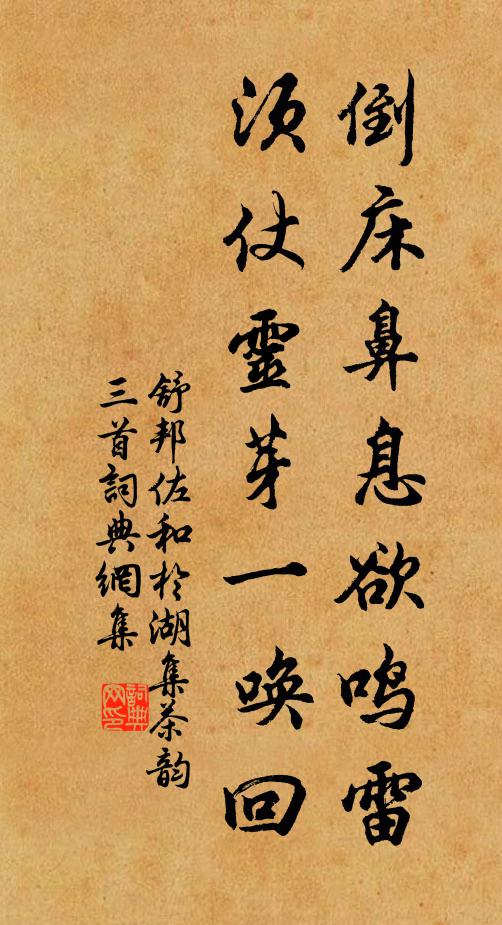 倒床鼻息欲鸣雷
须仗靈芽一唤回
舒邦佐和於湖集茶韵
三首詞典網集
詞典网印